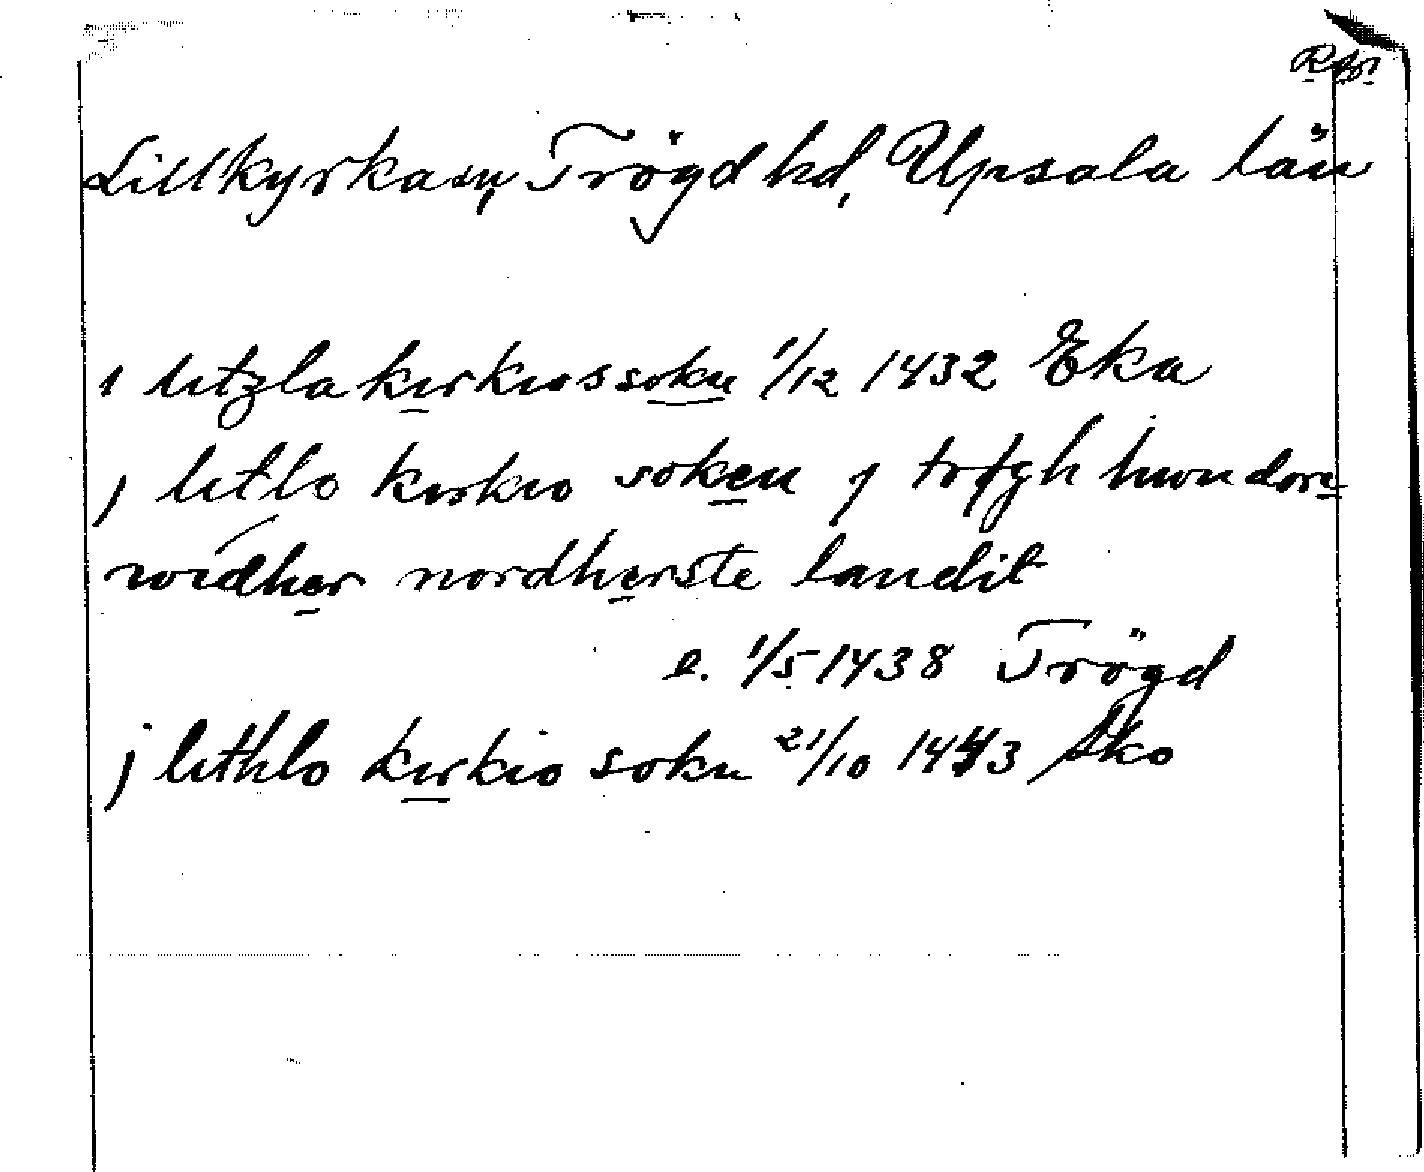 Lillkyrka sn, Trögd hd, Upsala län
i litzla kirkios sokn 1/12 1432 Eka
j litlo kirkio soken j trøgh hundore
widher nordherste landit
e. 1/5 1438 Trögd
j lithlo kirkio sokn 21/10 1443 Sko